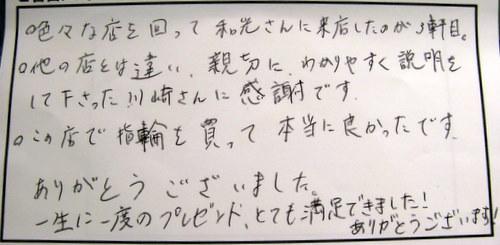 ○色々な店を回って和光さんに来店したのが3軒目。
○他の店とは違い、親切に、わかりやすく説明を
して下さった川崎さんに感謝です。
○この店で指輪を買って本当に良かったです。
ありがとうございました。
一生に一度のプレゼント、とても満足できました!
ありがとうございます!